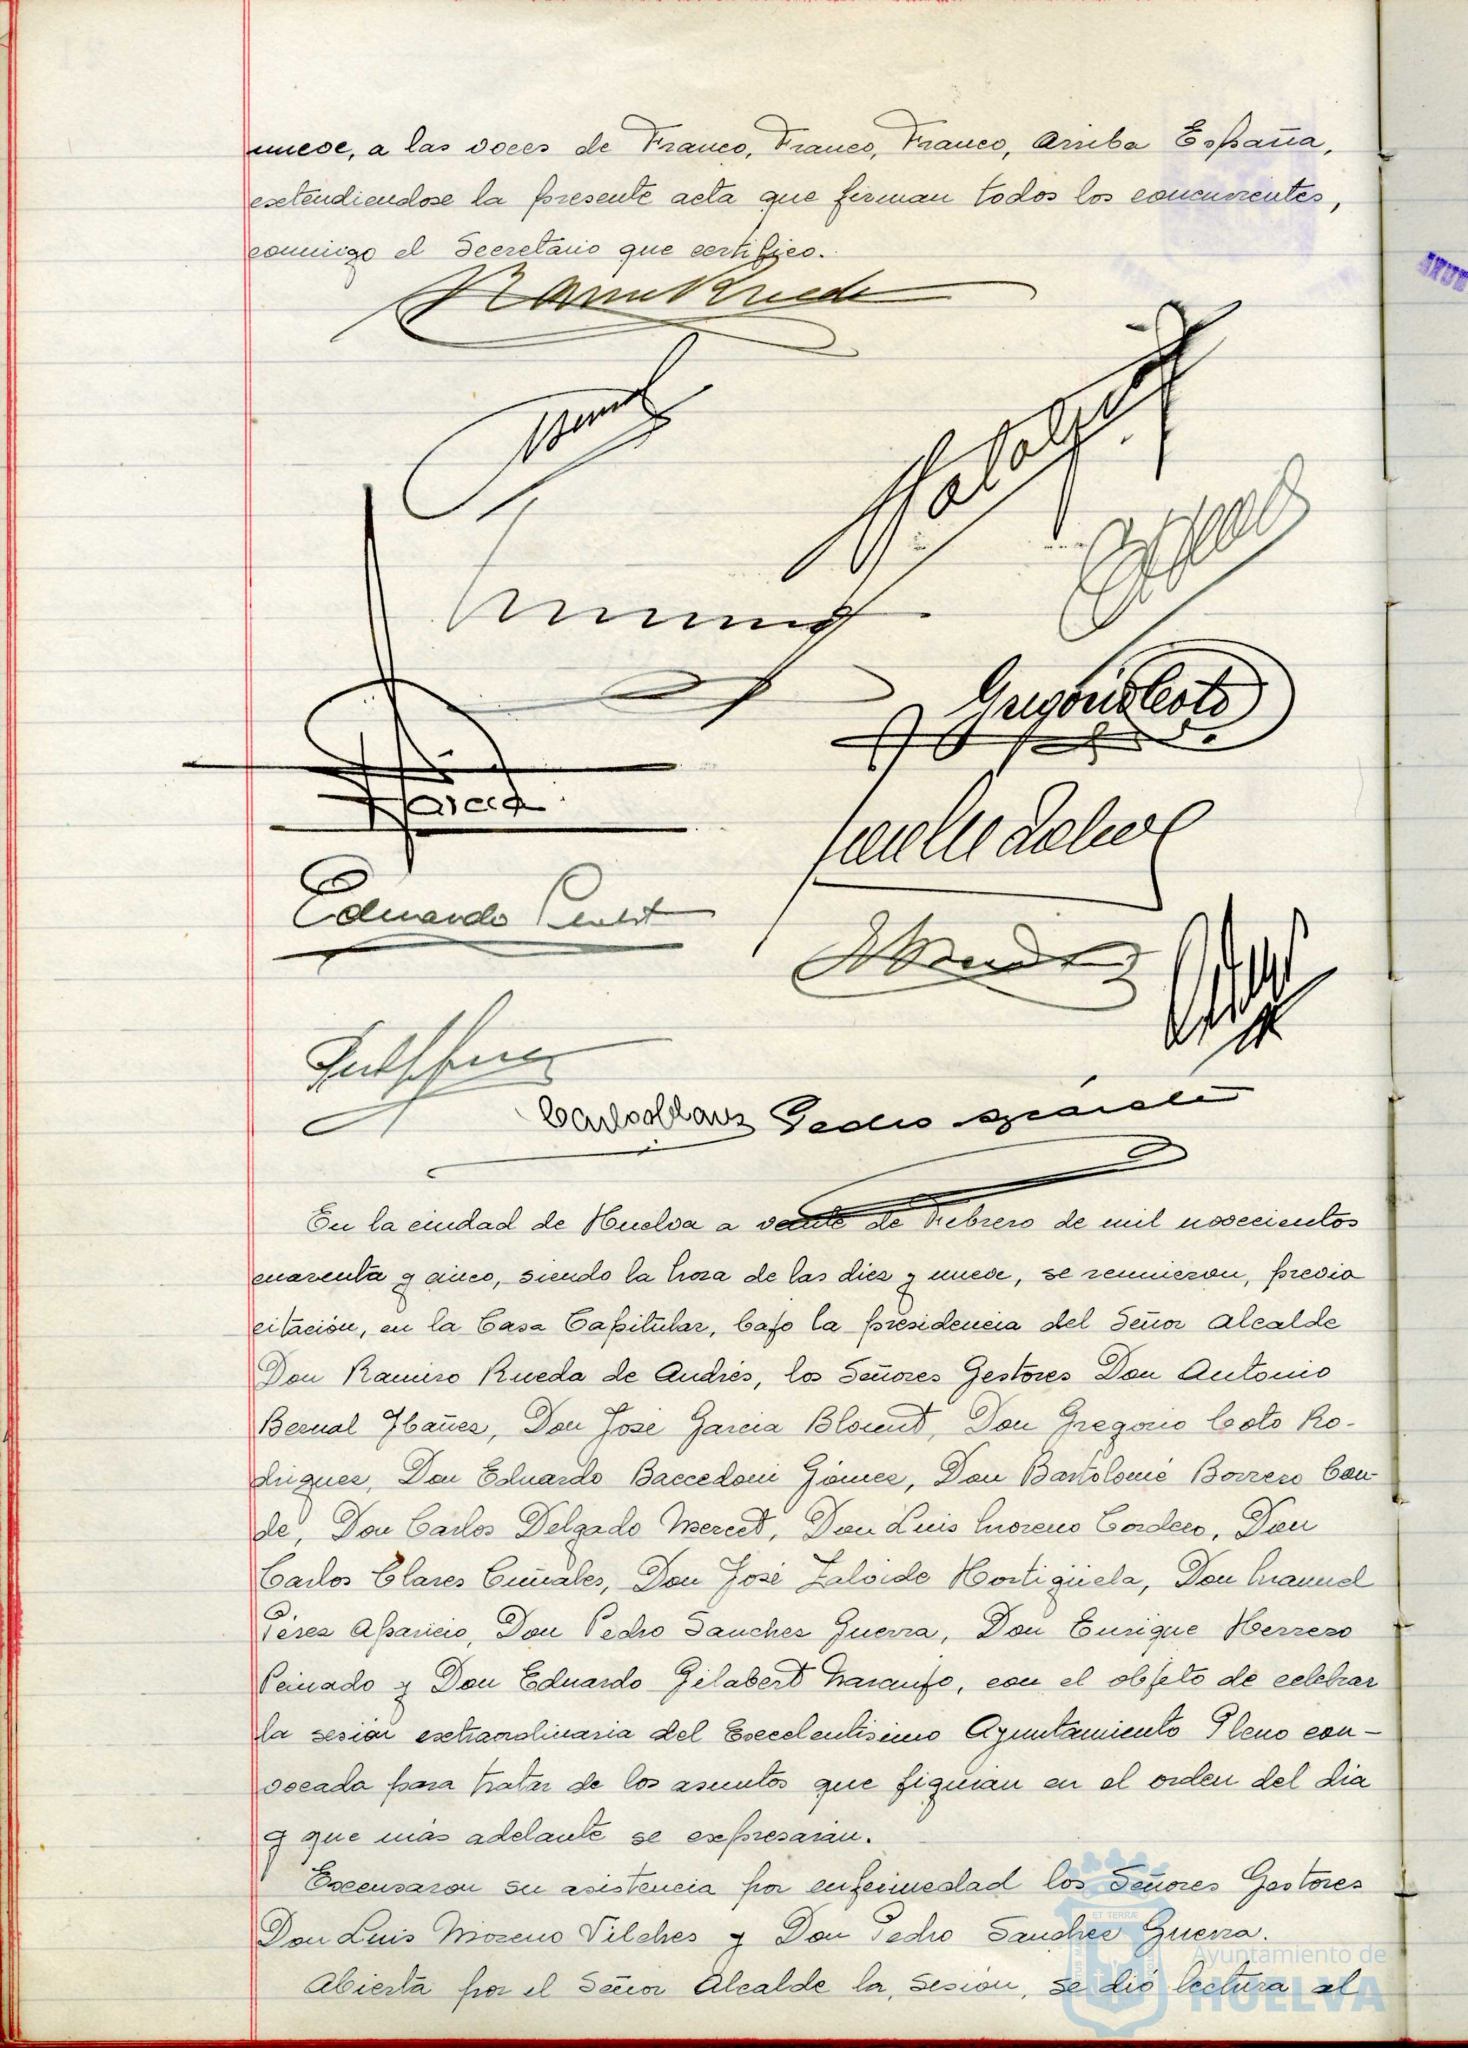 nueve, a las voces de Franco, Franco, Franco, Arriba España,
extendiendose la presente acta que firman todos los concurrentes,
conmigo el Secretario que certifico.
Ramiro Rueda
Gregorio Coto
García
Eduardo
Carlos Clares Pedro
En la ciudad de Huelva a veinte de Febrero de mil novecientos
cuarenta y cinco, siendo la hora de las diez y nueve, se reunieron, previa
citación, en la Casa Capitular, bajo la presidencia del Señor Alcalde
Don Ramiro Rueda de Andrés, los Señores Gestores Don Antonio
Bernal Ybañez, Don José Garcia Blount, Don Gregorio Coto Ro-
driguez, Don Eduardo Baccedoni Gómez, Don Bartolomé Borrero Con-
de, Don Carlos Delgado Mercet, Don Luis Moreno Cordero, Don
Carlos Clares Cuñales, Don José Zalvide Hortigüela, Don Manuel
Pérez Aparicio, Don Pedro Sanchez Guerra, Don Enrique Herrero
Peinado y Don Eduardo Gilabert Naranjo, con el objeto de celebrar
la sesión extraordinaria del Excelentísimo Ayuntamiento Pleno con-
vocada para tratar de los asuntos que figuran en el orden del dia
y que más adelante se expresarán.
Excusaron su asistencia por enfermedad los Señores Gestores
Don Luis Moreno Vilches y Don Pedro Sanchez Guerra.
Abierta por el Señor Alcalde la sesión, se dió lectura al
Ayuntamiento de
HUELVA